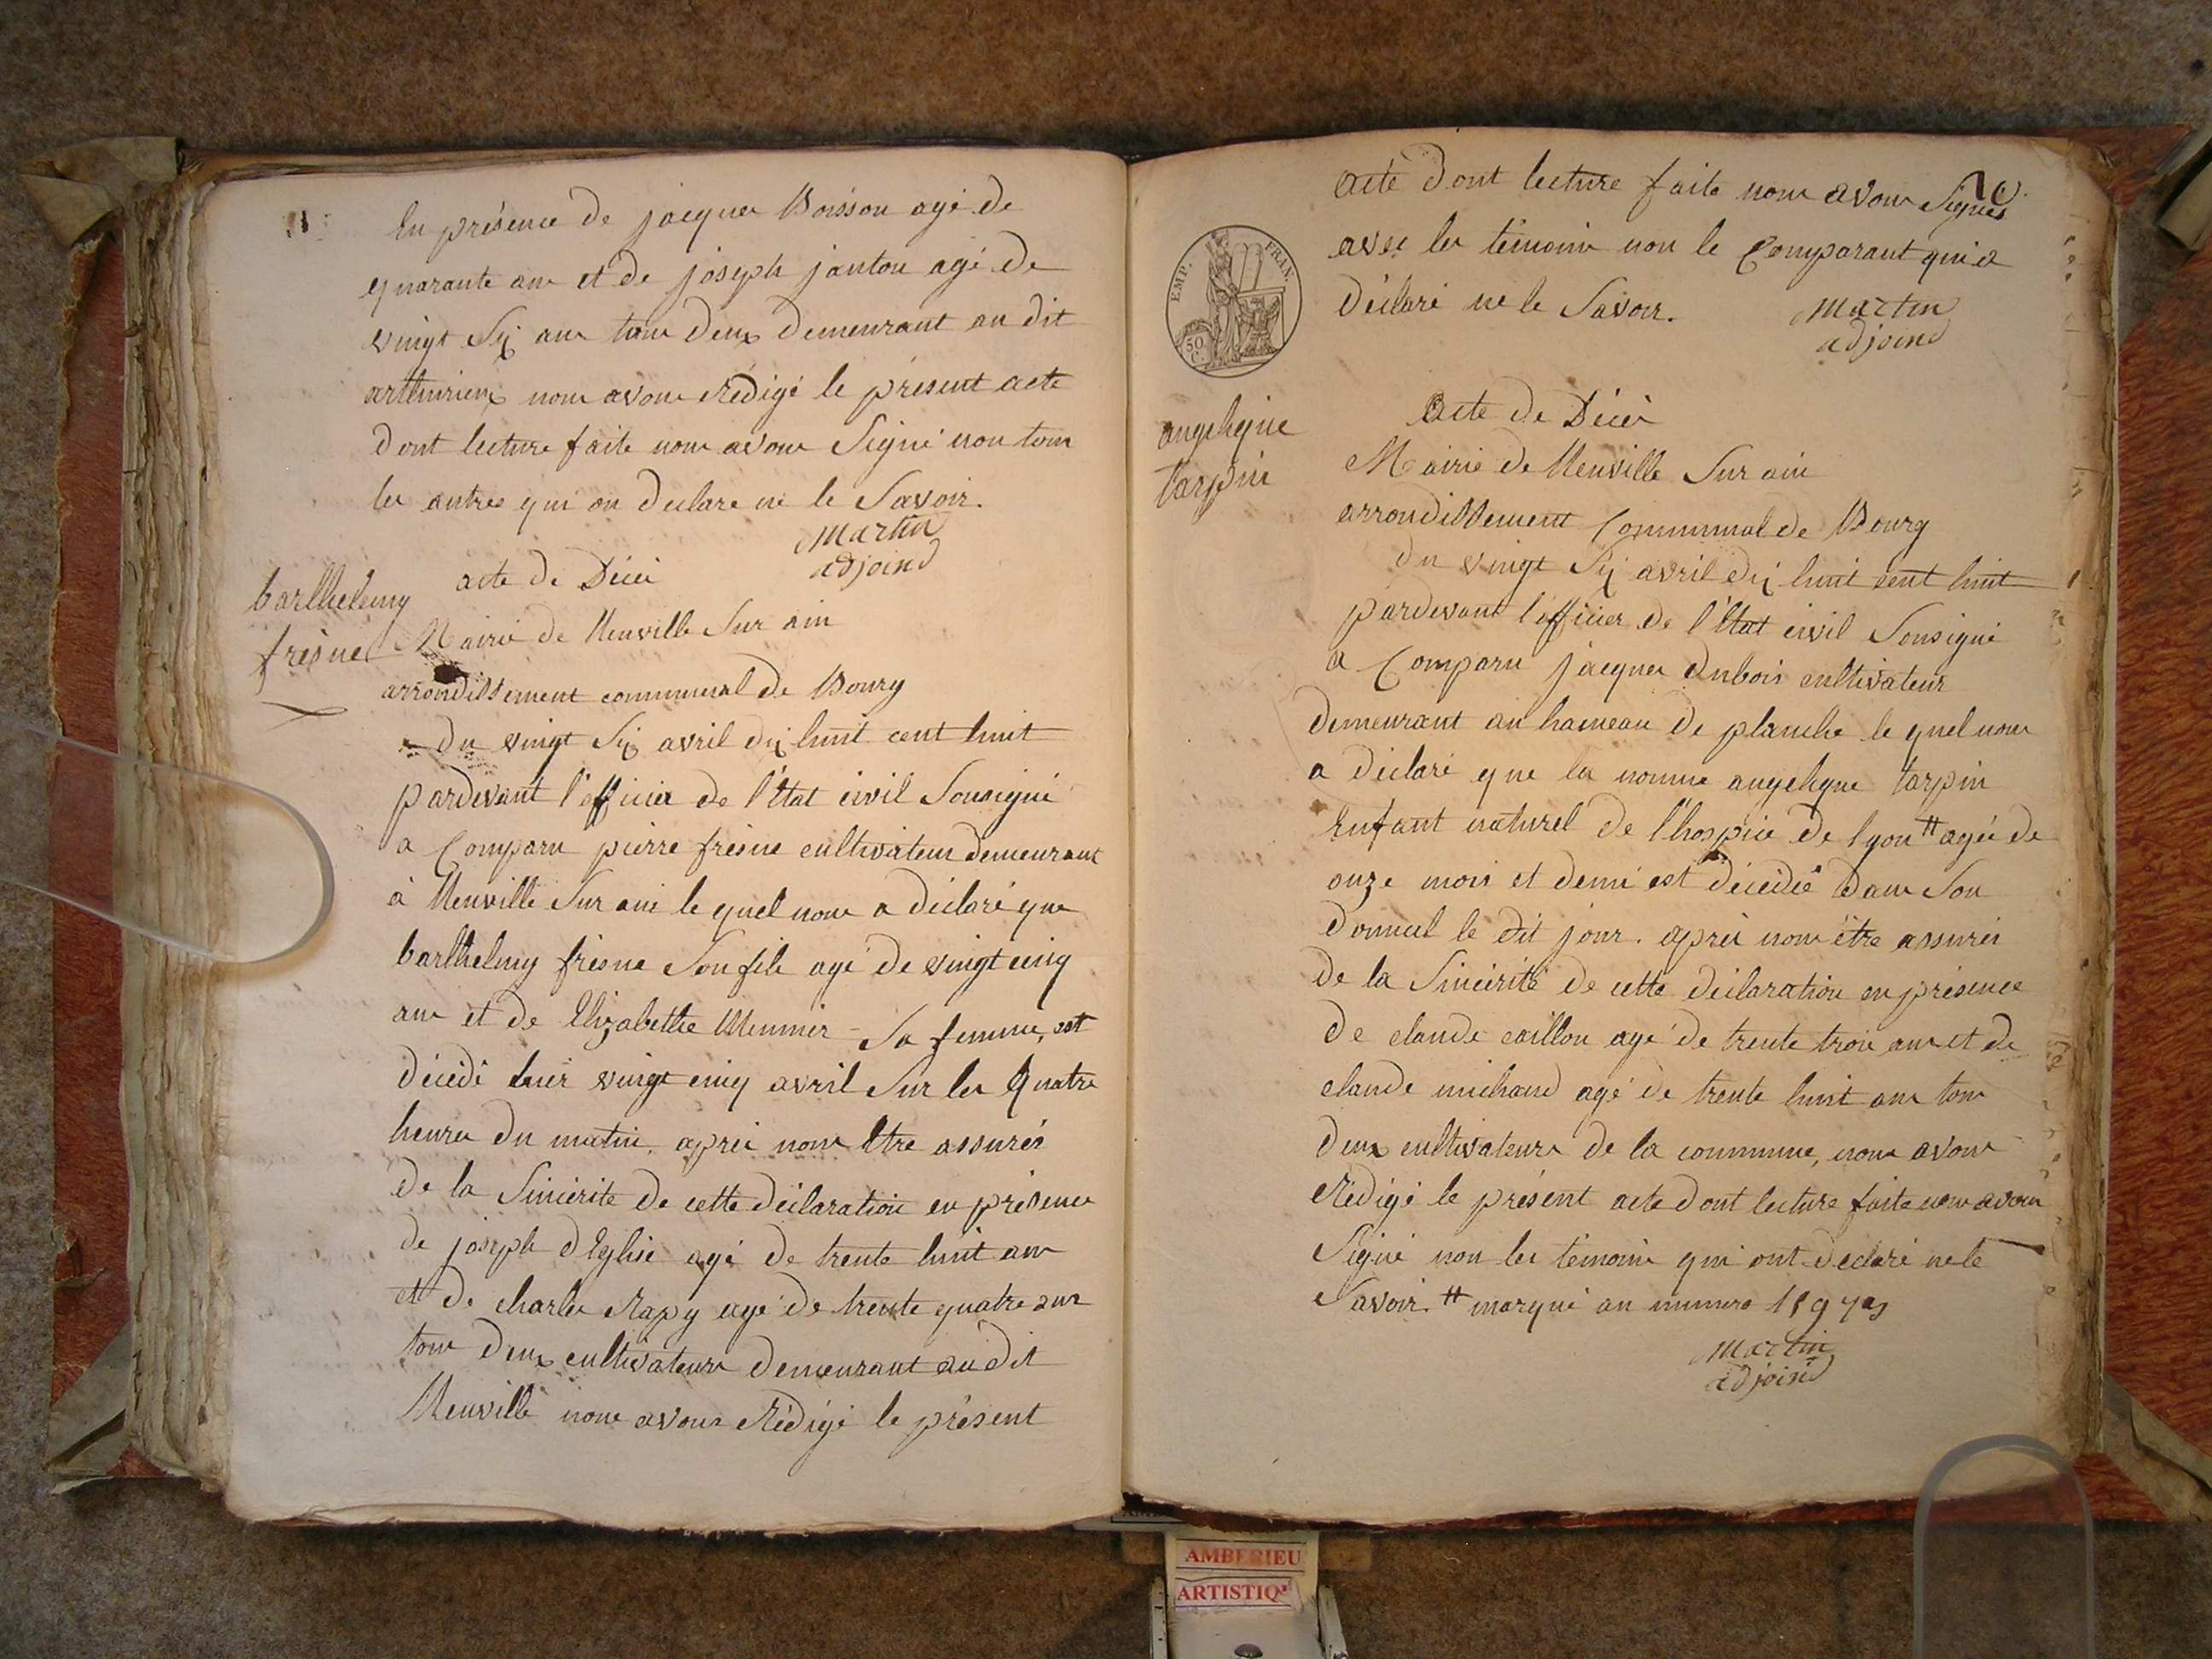 En présence de jacques Boisson agé de
quarante ans et de joseph janton agé de
vingt six ans tous deux demeurant au dit
arthurieux nous avons Rédigé le présent acte
dont lecture faite nous avons Signé non tous
les autres qui on declare ne le Savoir.
Martin
adjoind
barthelemy
fresne
acte de Décès
Mairie de Neuville Sur ain
arrondissement communal de Bourg
du vingt Six avril dix huit cent huit
pardevant l'officier de l'Etat civil Sousigné
a Comparu pierre fresne cultivateur demeurant
à Neuville Sur ain le quel nous a déclaré que
barthelmy fresne Son fils agé de vingt cinq
ans et de Elizabethe Meunier Sa femme, est
décédé hier vingt cinq avril Sur les Quatre
heures du matin, après nous Etre assurés
de la Sincérité de cette déclaration en présence
de joseph dEglise agé de trente huit ans
et de charles Rapy agé de trente quatre ans
tous deux cultivateurs demeurant au dit
Neuville nous avons Rédigé le présent
acte dont lecture faite nous avons Signés
avec les témoins non le Comparant qui a
déclaré ne le Savoir.
Martin
adjoind
EMP. FRAN.
50 C.
angelique
tarpin
Acte de Décès
Mairie de Neuville Sur ain
arrondissement Communal de Bourg
du vingt Six avril dix huit cent huit
pardevant l'officier de l'Etat civil Sousigné
a Comparu jacques dubois cultivateur
demeurant au hameau de planche le quel nous
a déclaré que la nomme angelique tarpin
Enfant naturel de l'hospice de lyon # agée de
onze mois et demi est décédée dans Son
domicil le dit jour. après nous être assurés
de la Sincérité de cette déclaration en présence
de claude caillon agé de trente trois ans et de
claude michaud agé de trente huit ans tous
deux cultivateurs de la commune, nous avons
Rédigé le présent acte dont lecture faite nous avons
Signé non les témoins qui ont declaré ne le
Savoir. # marqué au numero
Martin
adjoind
AMBERIEU
ARTISTIQ